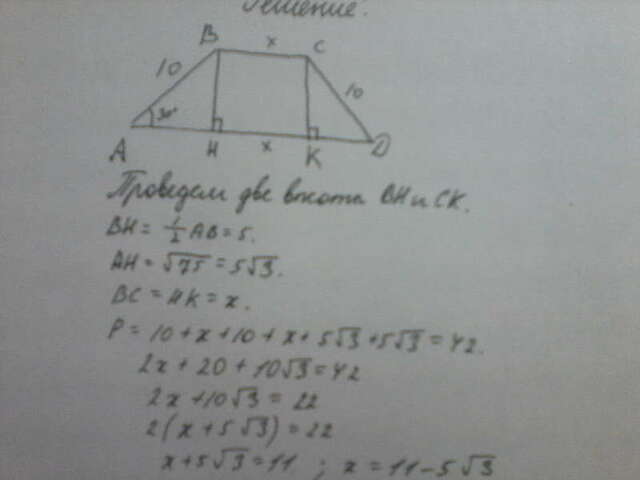 Решение:
B x C
10 10
30°
A H x K D
Проведем две высоты BH и CK.
BH = 1/2 AB = 5.
AH = √75 = 5√3.
BC = HK = x.
P = 10 + x + 10 + x + 5√3 + 5√3 = 42.
2x + 20 + 10√3 = 42
2x + 10√3 = 22
2(x + 5√3) = 22
x + 5√3 = 11 ; x = 11 - 5√3